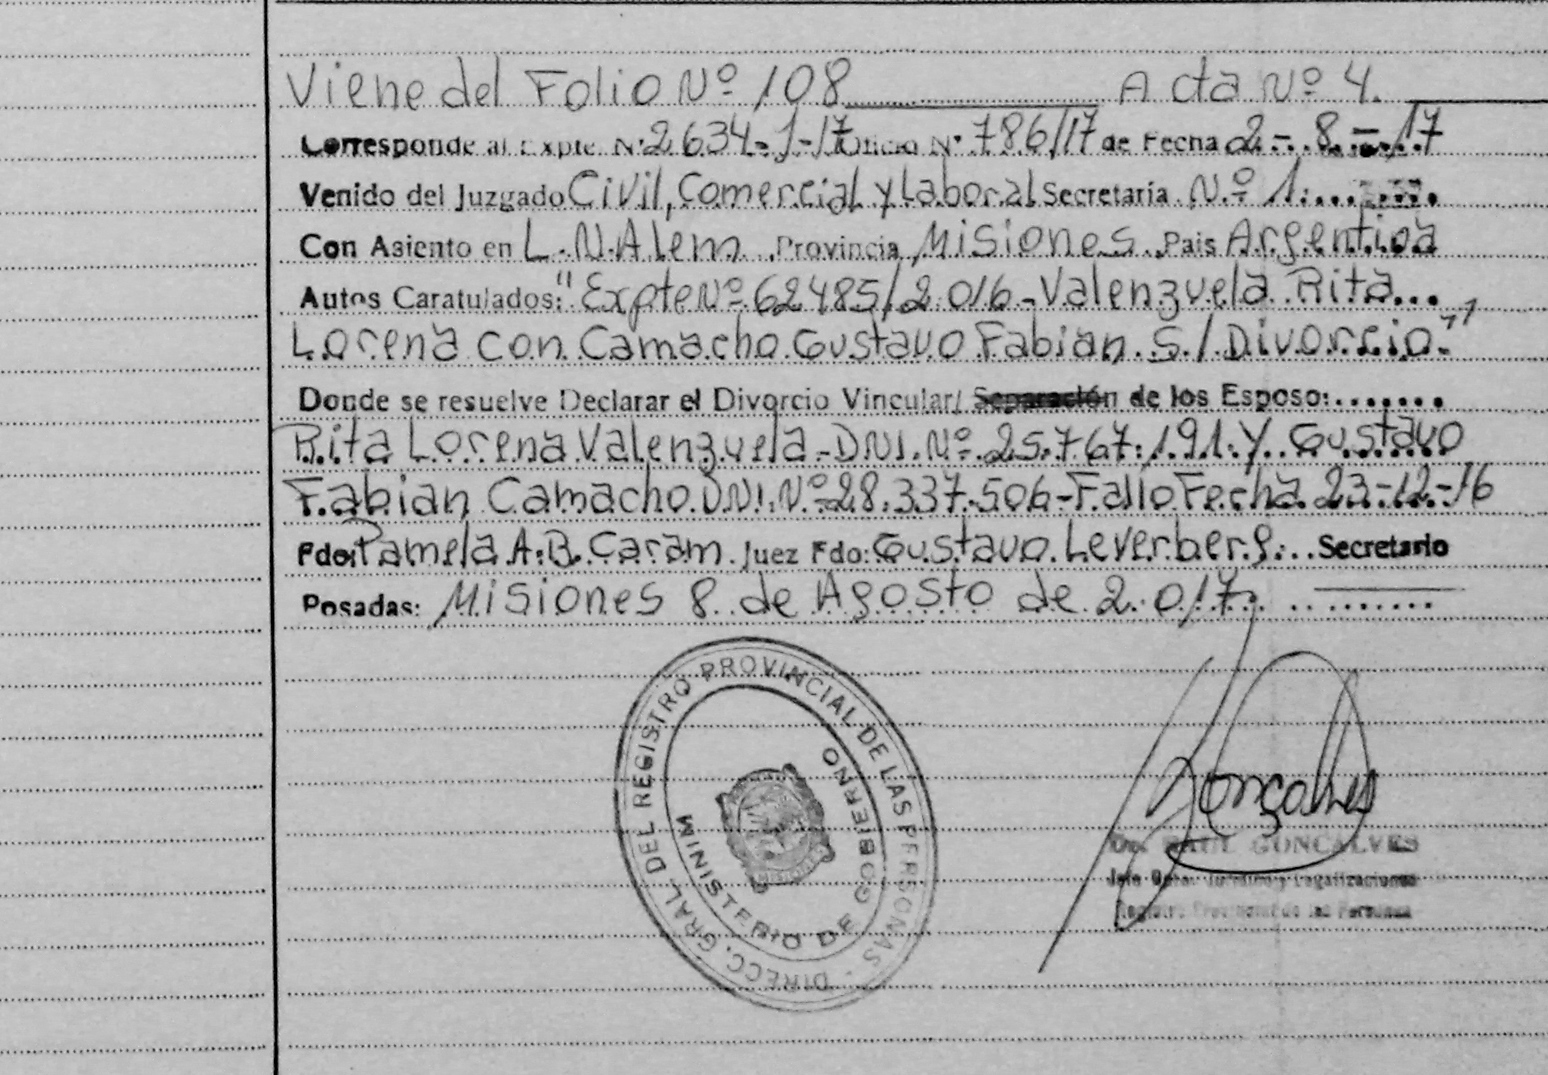 Viene del Folio Nº 108 Acta Nº 4.
Corresponde al Expte. Nº 2634-J-17 Oficio Nº 786/17 de Fecha 2-8-17
Venido del Juzgado Civil, Comercial y Laboral Secretaría Nº 1.
Con Asiento en L.N. Alem Provincia Misiones País Argentina
Autos Caratulados: "Expte Nº 62485/2016-Valenzuela Rita
Lorena con Camacho Gustavo Fabian S/Divorcio."
Donde se resuelve Declarar el Divorcio Vincular/ Separación de los Esposo:
Rita Lorena Valenzuela-DNI.Nº 25.767.191. Y Gustavo
Fabian Camacho DNI.Nº 28.337.506-Fallo Fecha 23-12-16
Fdo: Pamela A.B. Caram Juez Fdo: Gustavo Leverberg. Secretario
Posadas: Misiones 8 de Agosto de 2.017.
DIRECC. GRAL DEL REGISTRO PROVINCIAL DE LAS PERSONAS -
MINISTERIO DE GOBIERNO
MISIONES
Gonçalves
Dr. RAUL GONCALVES
Jefe Dpto. Jurídico y Legalizaciones
Registro Provincial de las Personas